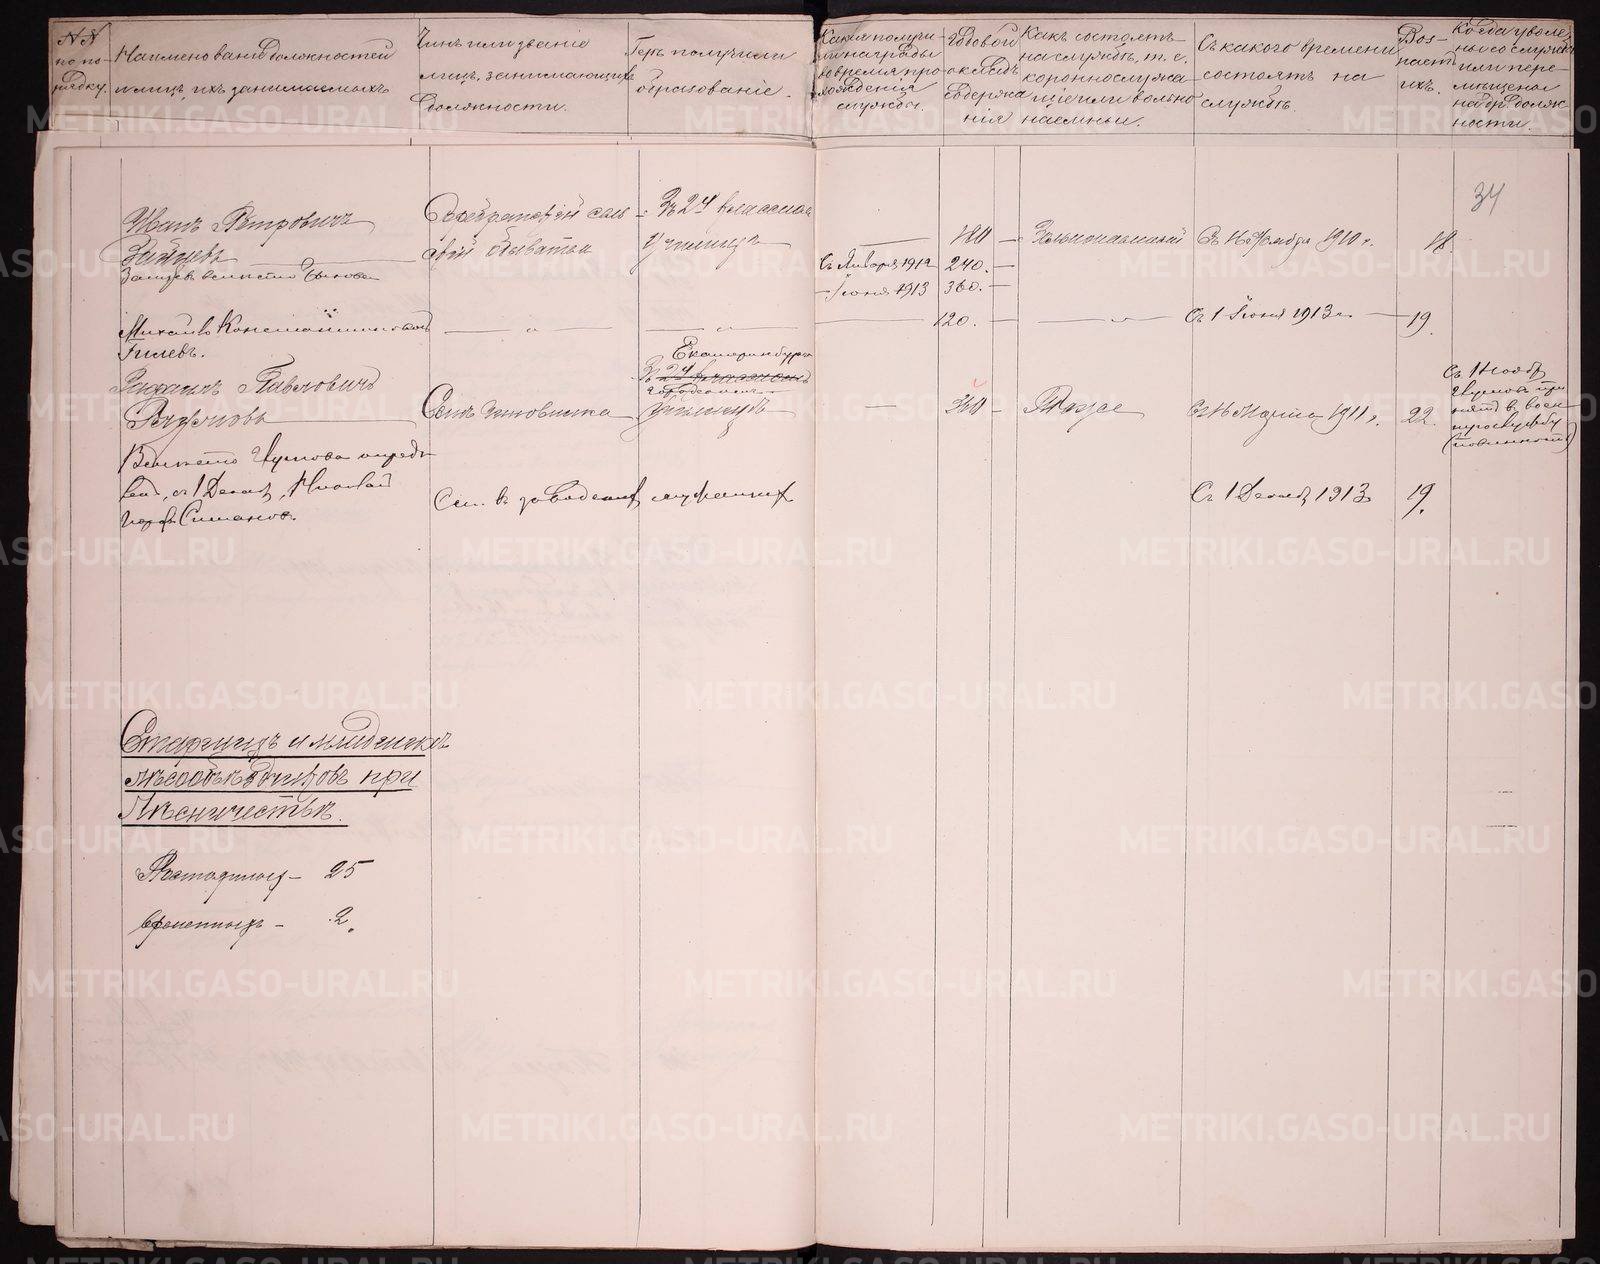 NN
по по-
рядку.
Наименованіе должностей
и лицъ, ихъ занимаемыхъ
Чинъ или званіе
лицъ, занимающихъ
должности.
Гдѣ получили
образованіе.
Какія получи
ли награды
во время про
хожденія
службы.
Годовой
окладъ
содержа
нія
Какъ состоятъ
на службѣ, т. е.
короннослужа
щіе или вольно
наемные.
Съ какого времени
состоятъ на
службѣ.
Воз-
растъ
ихъ.
Когда уволе
ны со службы
или пере-
мѣщены
на др. долж-
ности.
34
Иванъ Петровичъ
Зайцевъ
Зайцев вмѣсто
сель
скій обыватель
Въ 2хъ классном
училищѣ
180
Вольнонаемный
Съ 1 Ноября 1910 г.
18.
Съ Января 1912 240.
Іюня 1913 360.
Михаилъ Константиновъ
Гилевъ.
120.
Съ 1 Іюня 1913 г.
19.
Павловичъ
Сынъ чиновника
Екатеринбургск
Въ 2х классномъ
городскомъ
училищѣ
Тоже
Съ 1 Марта 1911 г.
22.
Съ 1 Ноябр
при
нятъ в воен
ную службу
(повинность)
Вмѣсто опредѣ
лен, съ 1 Декаб, Николай
Симанов.
Съ 1 Декаб 1913
19.
Старшихъ и младшихъ
лѣсообъѣздчиковъ при
Лѣсничествѣ.
Постоянныхъ – 25
временныхъ – 2.
METRIKI.GASO-URAL.RU